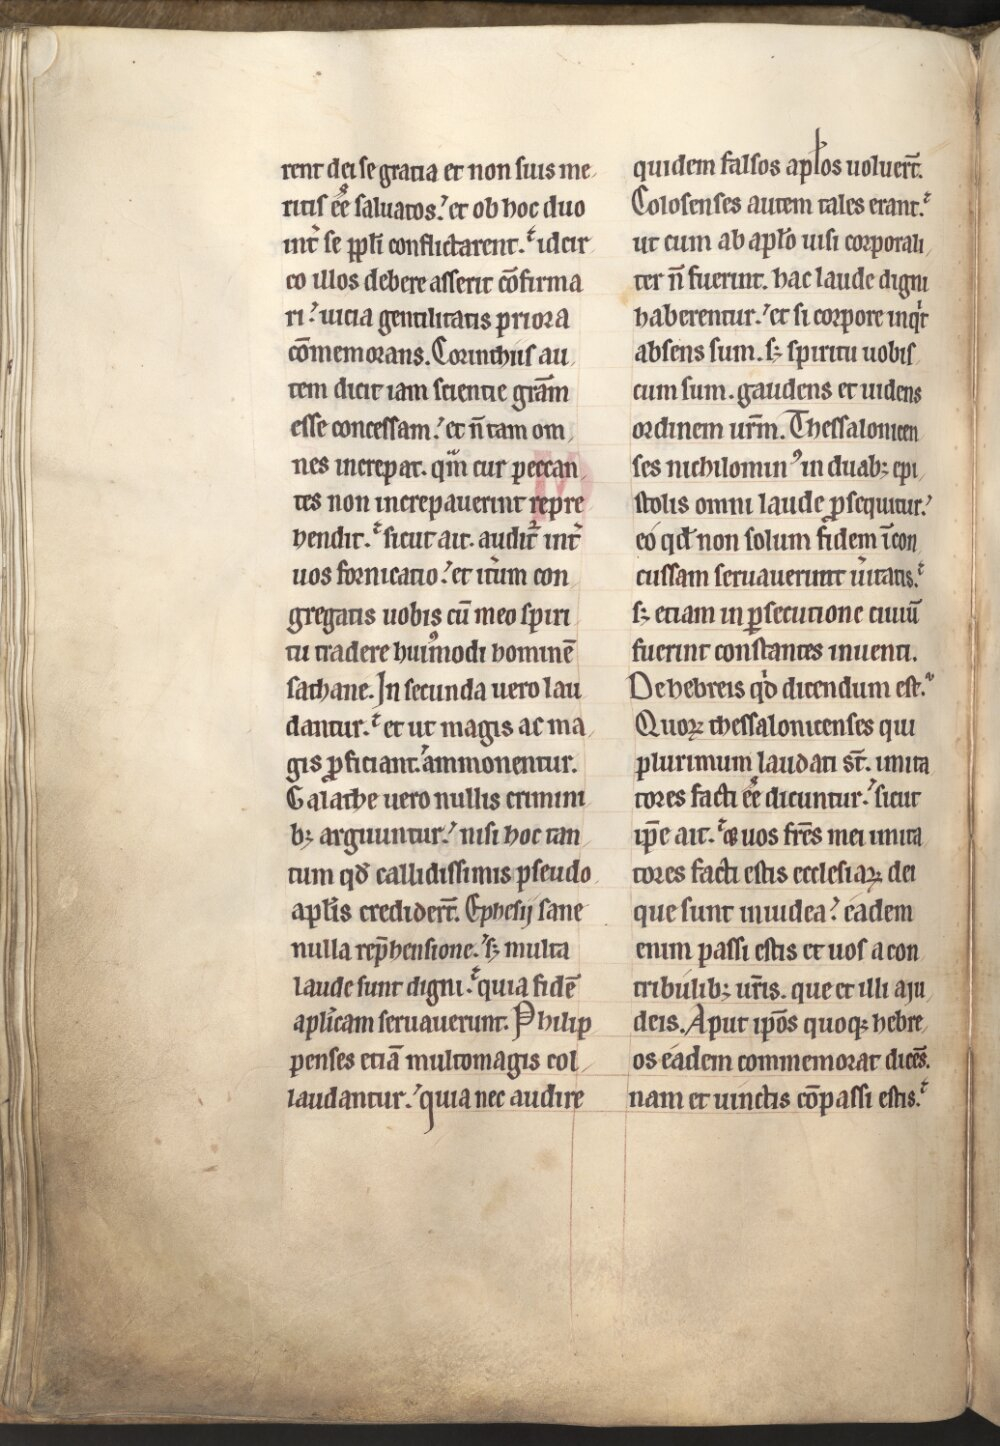 rent dei se gratia et non suis me
ritis ee̅ saluatos. et ob hoc duo
int̓ se ppl̓i conflictarent. idcir
co illos debere asserit co̅firma
ri. uicia gentilitatis priora
co̅memorans. Corinthiis au
tem dicit iam scientie gra̅m
esse concessam. et n̅ tam om
nes increpat. qm̅ cur peccan
tes non increpauerint repre
hendit. sicut ait. audit᷑ int̓
uos fornicatio. et it̓um con
gregatis uobis cu̅ meo spiri
tu tradere hui᷒modi homine̅
sathane. In secunda uero lau
dantur. et ut magis ac ma
gis ꝓficiant. ammonentur.
Galathe uero nullis crimini
bꝫ arguuntur. nisi hoc tan
tum qd̅ callidissimis pseudo
apl̓is credider̅t. Ephesij sane
nulla rep̅hensione. sꝫ multa
laude sunt digni. quia fide̅
apl̓icam seruauerunt. Philip
penses etia̅ multomagis col
laudantur. quia nec audire
quidem falsos apl̓os uoluer̅t.
Colosenses autem tales erant.
ut cum ab apl̓o uisi corporali
ter n̅ fuerint. hac laude digni
haberentur. et si corpore inq̓t
absens sum. sꝫ spiritu uobis
cum sum. gaudens et uidens
ordinem ur̅m. Thessalonicen
ses nichilominꝰ in duabꝫ epi
stolis omni laude ꝓsequitur.
eo qd̅ non solum fidem i̅con
cussam seruauerunt u̓itatis.
sꝫ etiam in ꝑsecutione ciuiu̅
fuerint constantes inuenti.
De hebreis q̓d dicendum est.
Quoꝝ thessalonicenses qui
plurimum laudati st̅. imita
tores facti ee̅ dicuntur. sicut
ip̅e ait. & uos fr̅es mei imita
tores facti estis ecclesiaꝝ dei
que sunt in iudea. eadem
enim passi estis et uos a con
tribulibꝫ ur̅is. que et illi a iu
deis. Aput ip̅os quoqꝫ hebre
os eadem commemorat dice̅s.
nam et uinctis co̅passi estis.